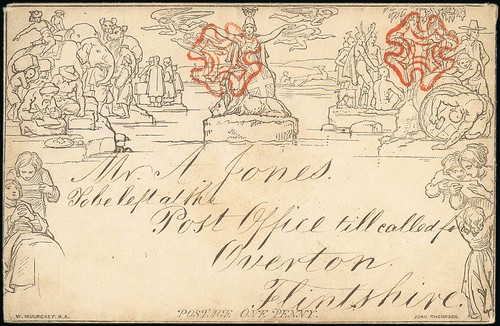 Mr. A. Jones.
To be left at the
Post Office till called fo
Overton.
Flintshire.
W. MULREADY. R.A.
POSTAGE ONE PENNY.
JOHN THOMPSON.